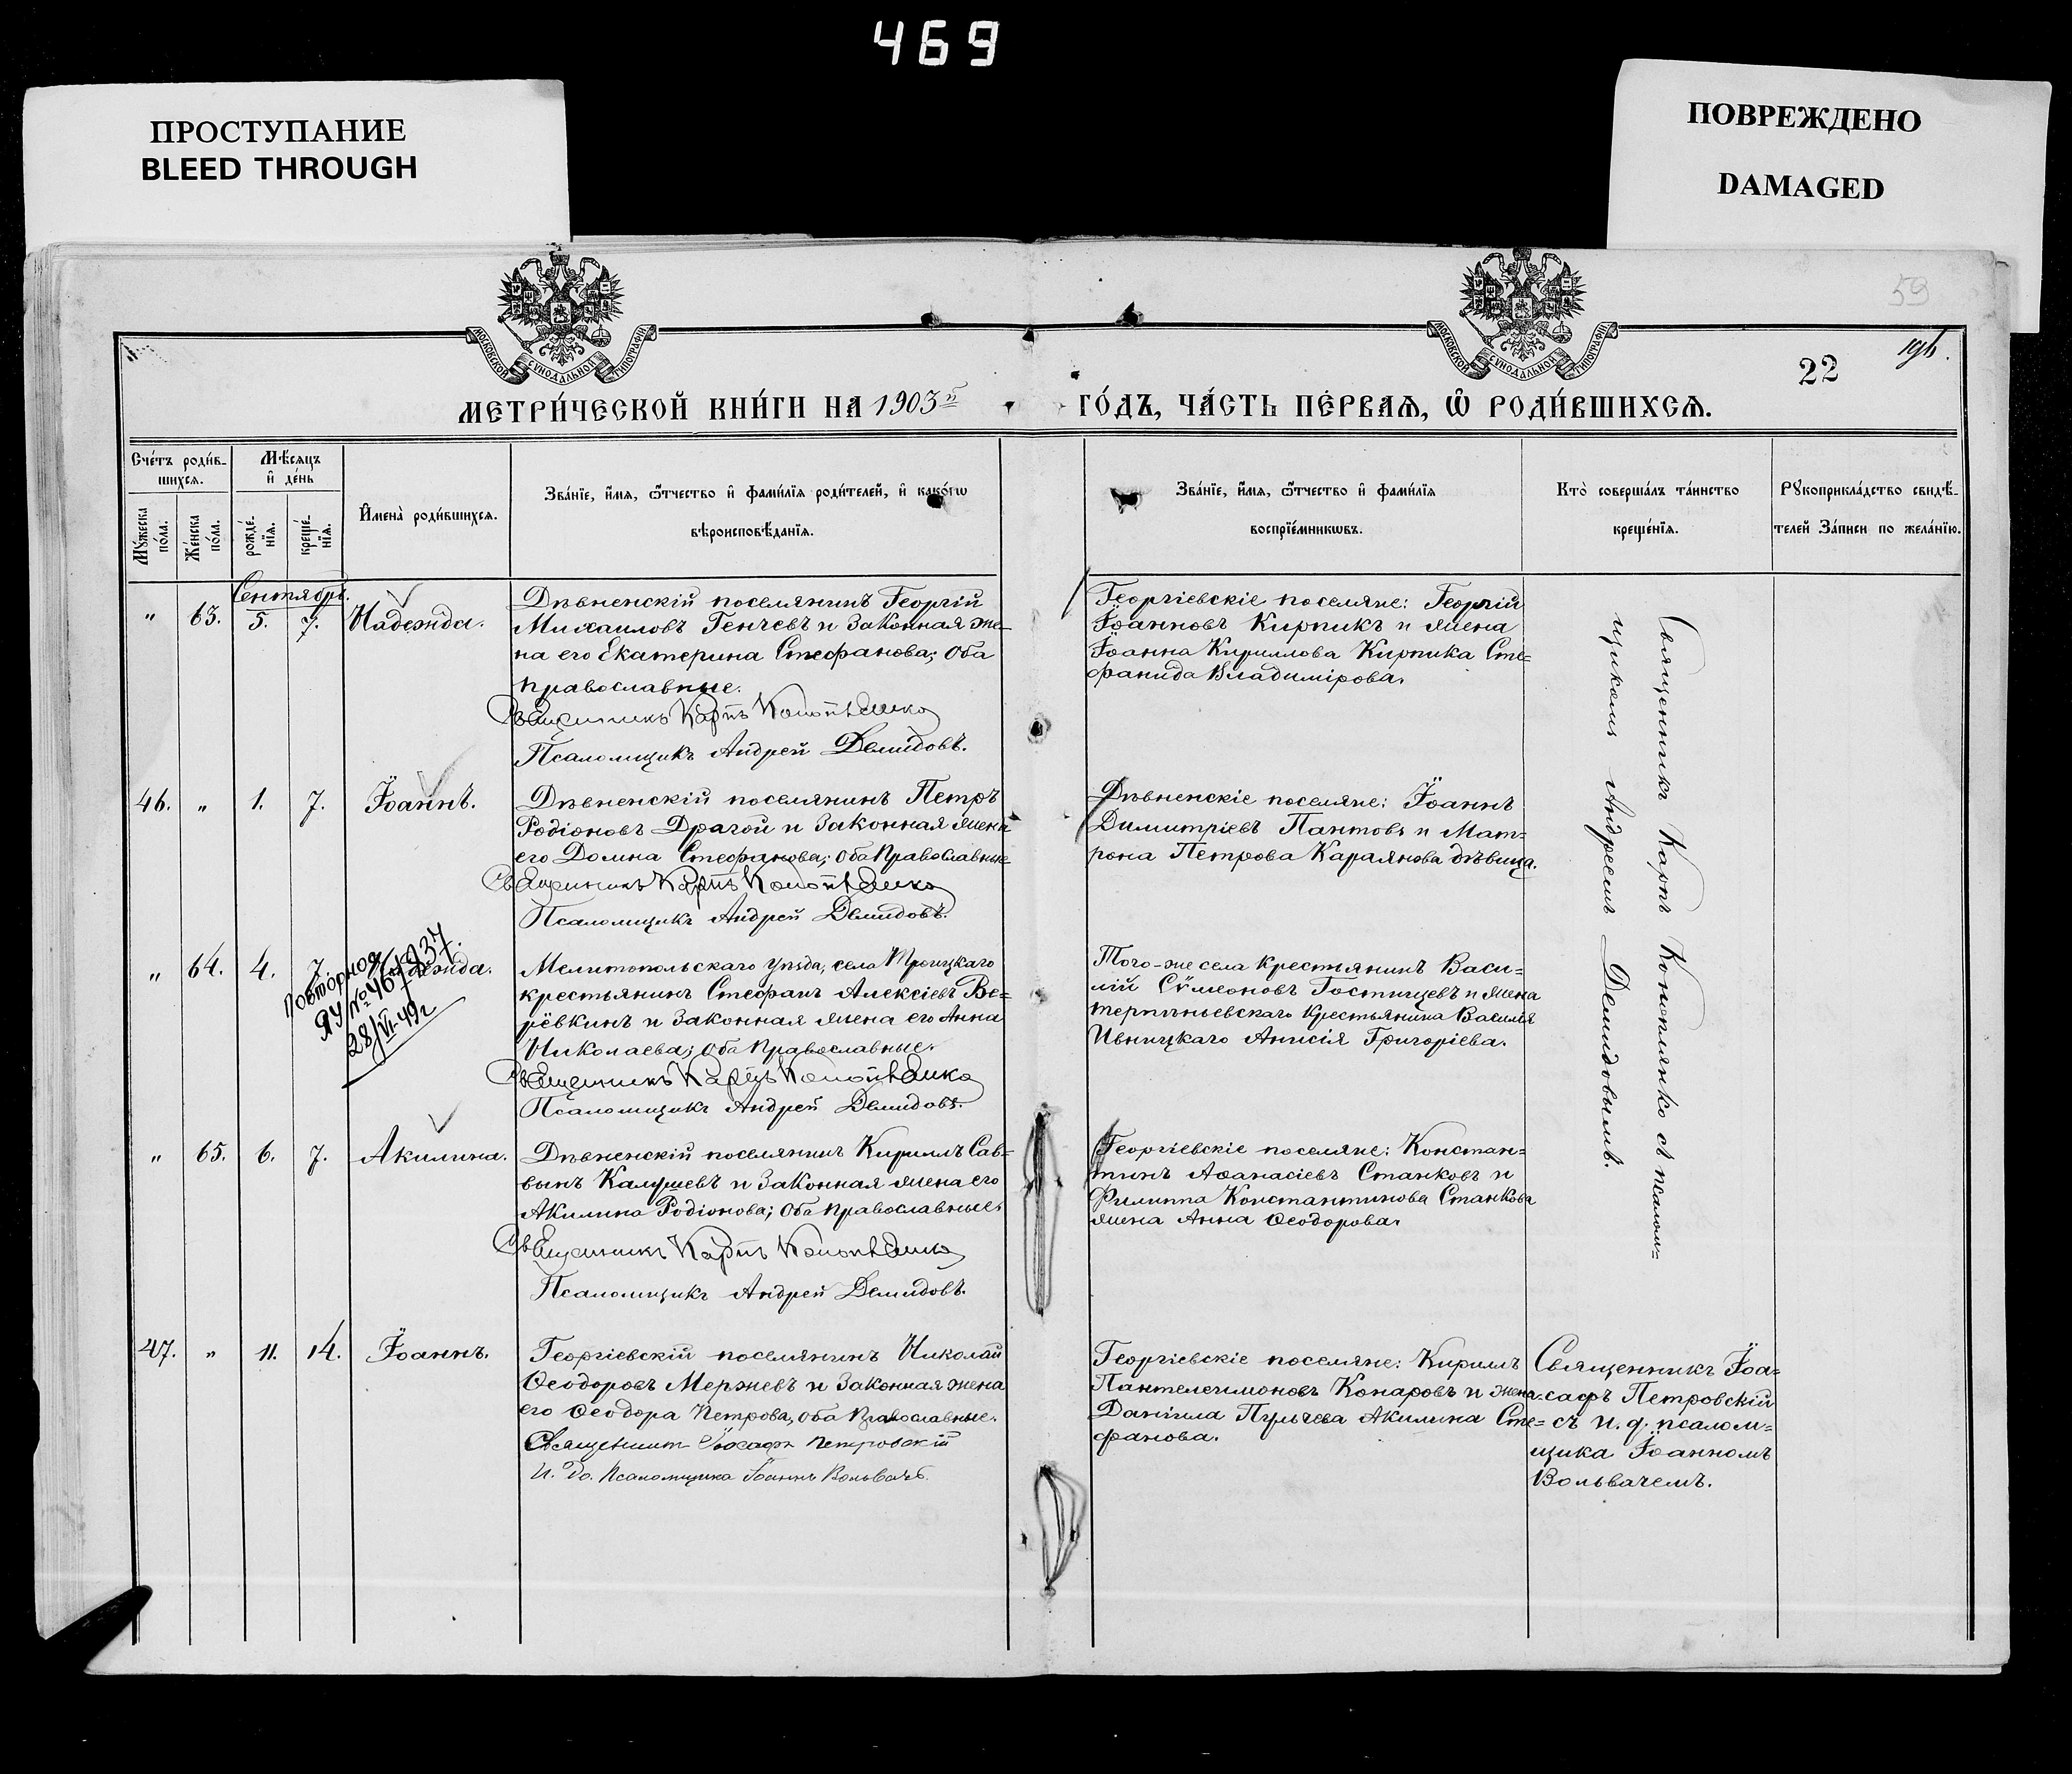 469
ПРОСТУПАНИЕ
BLEED THROUGH
ПОВРЕЖДЕНО
DAMAGED
59
196.
22
МОСКОВСКОЙ СѴНОДАЛЬНОЙ ТИПОГРАФІИ
МОСКОВСКОЙ СѴНОДАЛЬНОЙ ТИПОГРАФІИ
МЕТРИ́ЧЕСКОЙ КНИ́ГИ НА 1903й ГО́ДЪ, ЧА́СТЬ ПЕ́РВАѦ, Ѽ РОДИ́ВШИХСѦ.
Сче́тъ роди́в-
шихсѧ.
Мꙋ́жеска по́ла.
Же́нска по́ла.
Мѣ́сѧцъ
и҆ де́нь
рожде́-
нїѧ.
креще́-
нїѧ.
И҆мена̀ роди́вшихсѧ.
Зва́нїе, и҆́мѧ, ѻ҆́тчество и҆ фами́лїѧ роди́телей, и҆ како́гѡ
вѣроисповѣ́данїѧ.
Зва́нїе, и҆́мѧ, ѻ҆́тчество и҆ фами́лїѧ
воспрїе́мникѡвъ.
Кто̀ соверша́лъ та́инство
креще́нїѧ.
Рꙋкоприкла́дство свидѣ́-
телей За́писи по жела́нїю.
Сентябрь.
" 63. 5. 7. Надежда.
Дѣвненскій поселянинъ Георгій
Михаиловъ Генчевъ и законная же-
на его Екатерина Стефанова; оба
православные.
Священникъ Карпъ Коноплянко
Псаломщикъ Андрей Демидовъ.
Георгіевскіе поселяне: Георгій
Іоанновъ Кирпикъ и жена
Іоанна Кириллова Кирпика Сте=
фанида Владимірова.
Священникъ Карпъ Коноплянко съ псалом=
щикомъ Андреемъ Демидовымъ.
46. " 1. 7. Іоаннъ.
Дѣвненскій поселянинъ Петръ
Родіоновъ Драгой и законная жена
его Домна Стефанова; оба православные
Священникъ Карпъ Коноплянко
Псаломщикъ Андрей Демидовъ.
Дѣвненскіе поселяне: Іоаннъ
Димитріевъ Пантовъ и Мат=
рона Петрова Караянова дѣвица.
" 64. 4. 7. Надежда.
Повторная
ЯУ №
28/VI-49г
Мелитопольскаго уѣзда, села Троицкаго
крестьянинъ Стефанъ Алексіевъ Ве=
рёвкинъ и законная жена его Анна
Николаева; оба православные.
Священникъ Карпъ Коноплянко
Псаломщикъ Андрей Демидовъ.
Того-же села крестьянинъ Васи=
лій Сѵмеоновъ Гостищевъ и жена
терпѣньевскаго крестьянина Василія
Ивницкаго Анисія Григоріева.
" 65. 6. 7. Акилина.
Дѣвненскій поселянинъ Кириллъ Сав=
вынъ Калушевъ и законная жена его
Акилина Родіонова; оба православные.
Священникъ Карпъ Коноплянко
Псаломщикъ Андрей Демидовъ.
Георгіевскіе поселяне: Констан=
тинъ Аѳанасіевъ Станковъ и
Филиппа Константинова Станкова
жена Анна Ѳеодорова.
47. " 11. 14. Іоаннъ.
Георгіевскій поселянинъ Николай
Ѳеодоровъ Мержевъ и законная жена
его Ѳеодора Петрова, оба православные.
Священникъ Іоасафъ Петровскій
И. до. Псаломщика Іоаннъ Вольвачъ.
Георгіевскіе поселяне: Кириллъ
Пантелеимоновъ Конаровъ и жена
Даніила Пульчева Акилина Сте=
фанова.
Священникъ Іоа=
сафъ Петровскій
съ и. д. псалом=
щика Іоанномъ
Вольвачемъ.